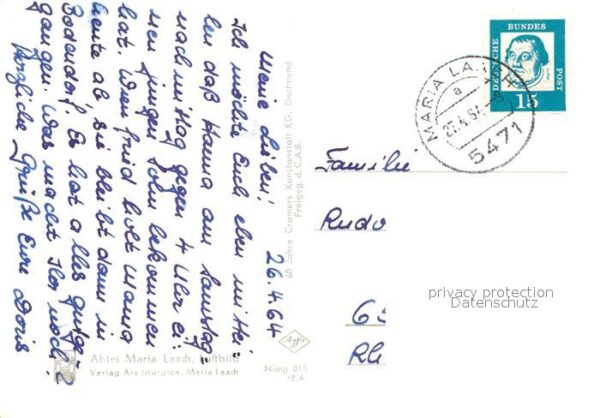 26.4.64
Meine Lieben!
Ich möchte Euch eben mittei-
len, daß Hanna am Samstag-
nachmittag gegen 4 Uhr ei-
nen jungen Sohn bekommen
hat. Wenfried holt Mama
heute ab. sie bleibt dann in
Bodendorf. Es hat alles gutge-
gangen. Was macht Ihr noch?
Herzliche Grüße Eure Doris
Abtei Maria Laach, Luftbild
Verlag Ars liturgica, Maria Laach
Nimp 015
60 Jahre Cramers Kunstanstalt KG, Dortmund
Freigeg. d. C.A.B.
Agfa
DEUTSCHE BUNDES POST
15
MARIA LAACH
a
27.4.64
5471
Familie
Rudo
privacy protection
Datenschutz